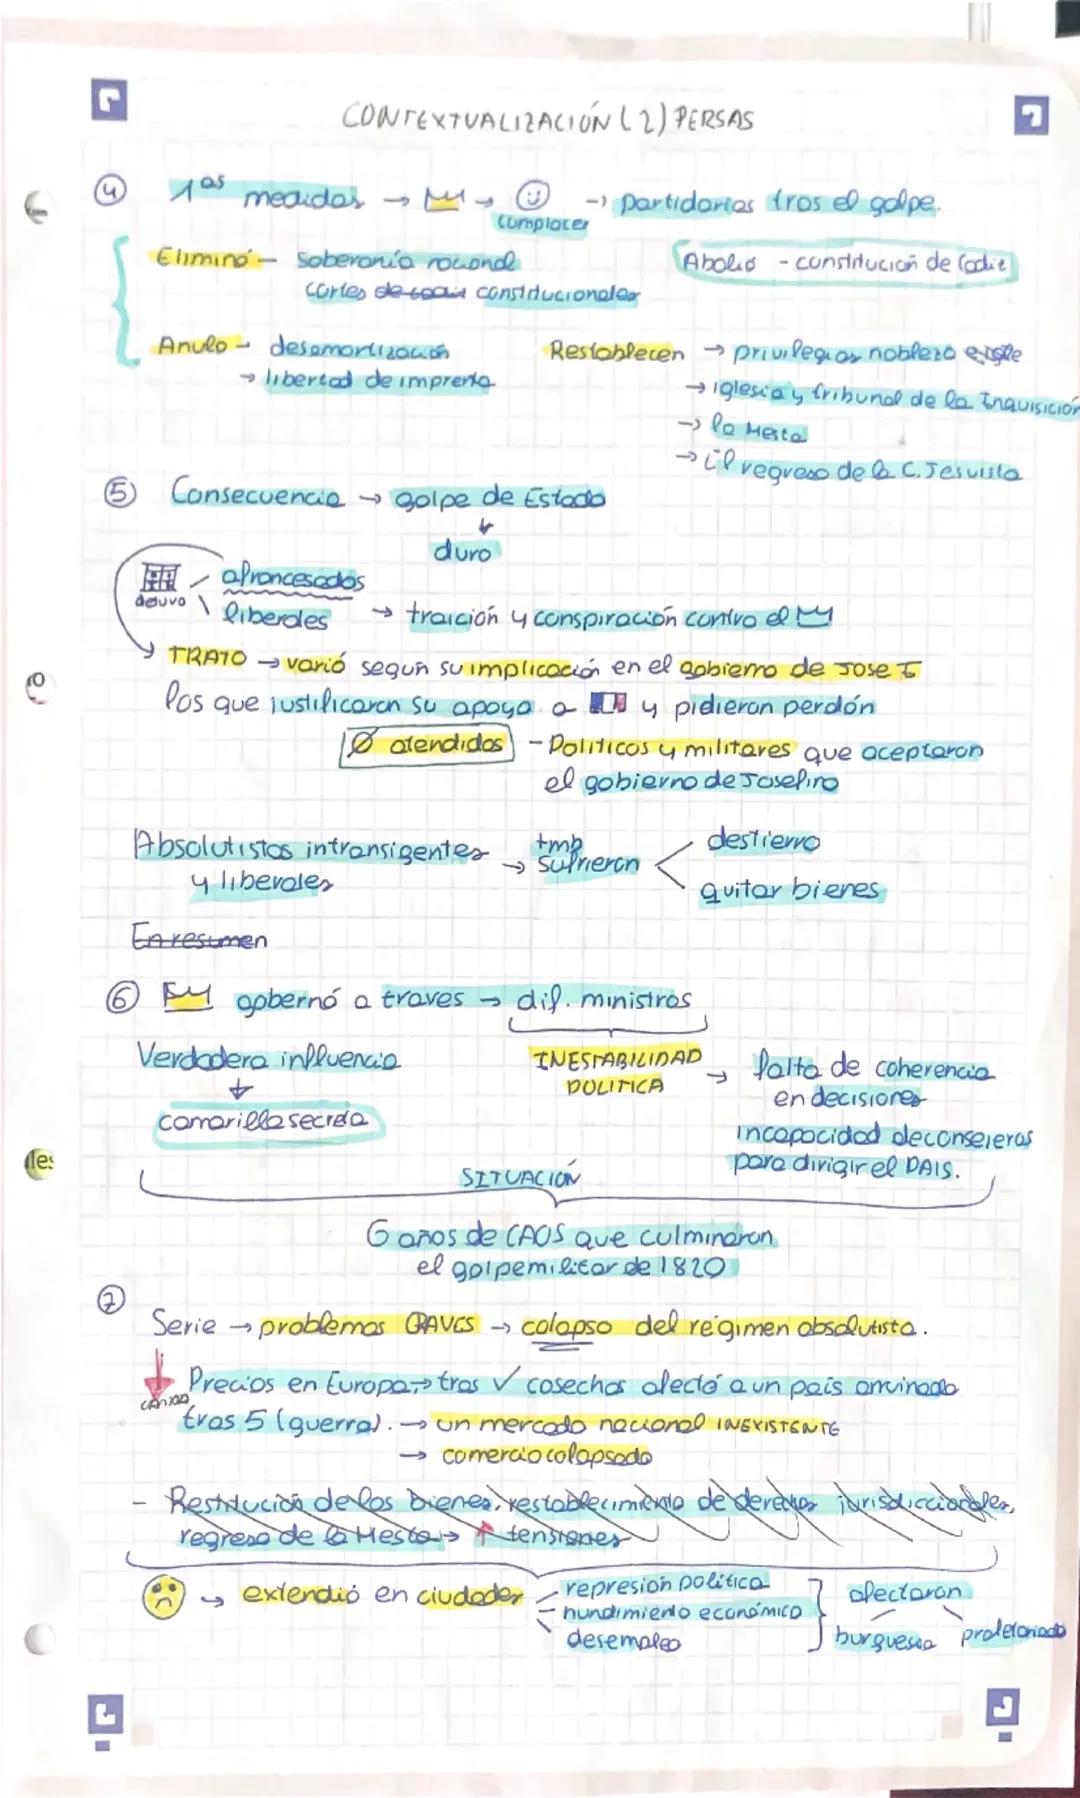 CONTEXTUALIZACIÓN (2) PERSAS
④ 1as medidas → → → partidarios tras el golpe.
complacer
Eliminó - soberanía nacional
Abolió - constitución de Cadiz
cortes de cadiz constitucionales
Anulo - desamortización
→ libertad de imprenta
Restablecen → privilegios nobleza
→ iglesia y tribunal de la Inquisición
→ la Mesta
→ El regreso de la C. Jesuista
⑤ Consecuencia → golpe de Estado
duro
detuvo
afrancesados
liberales → traición y conspiración contra el
TRATO → varió segun su implicación en el gobierno de Jose I
los que justificaron su apoyo a y pidieron perdón
Ø atendidos - Politicos y militares que aceptaron
el gobierno de Josefino
Absolutistas intransigentes → tmb sufrieron
y liberales
destierro
quitar bienes
En resumen
⑥ gobernó a traves → dif. ministros
Verdadera influencia
camarilla secreta
INESTABILIDAD
POLITICA
→ falta de coherencia
en decisiones
incapacidad deconsejeros
para dirigir el PAIS.
SITUACIÓN
6 años de CAOS que culminaron
el golpe militar de 1820
⑦
Serie → problemas GRAVES → colapso del régimen absolutista.
Precios en Europa → tras ✓ cosechas afectó a un país arruinado
tras 5 (guerra). → un mercado nacional INEXISTENTE
→ comercio colapsado
- Restitución de los bienes, restablecimiento de derechos jurisdiccionales,
regreso de la Mesta → ↑ tensiones
→ extendió en ciudades
- represión política
- hundimiento económico
desempleo
afectaron
burguesia proletariado